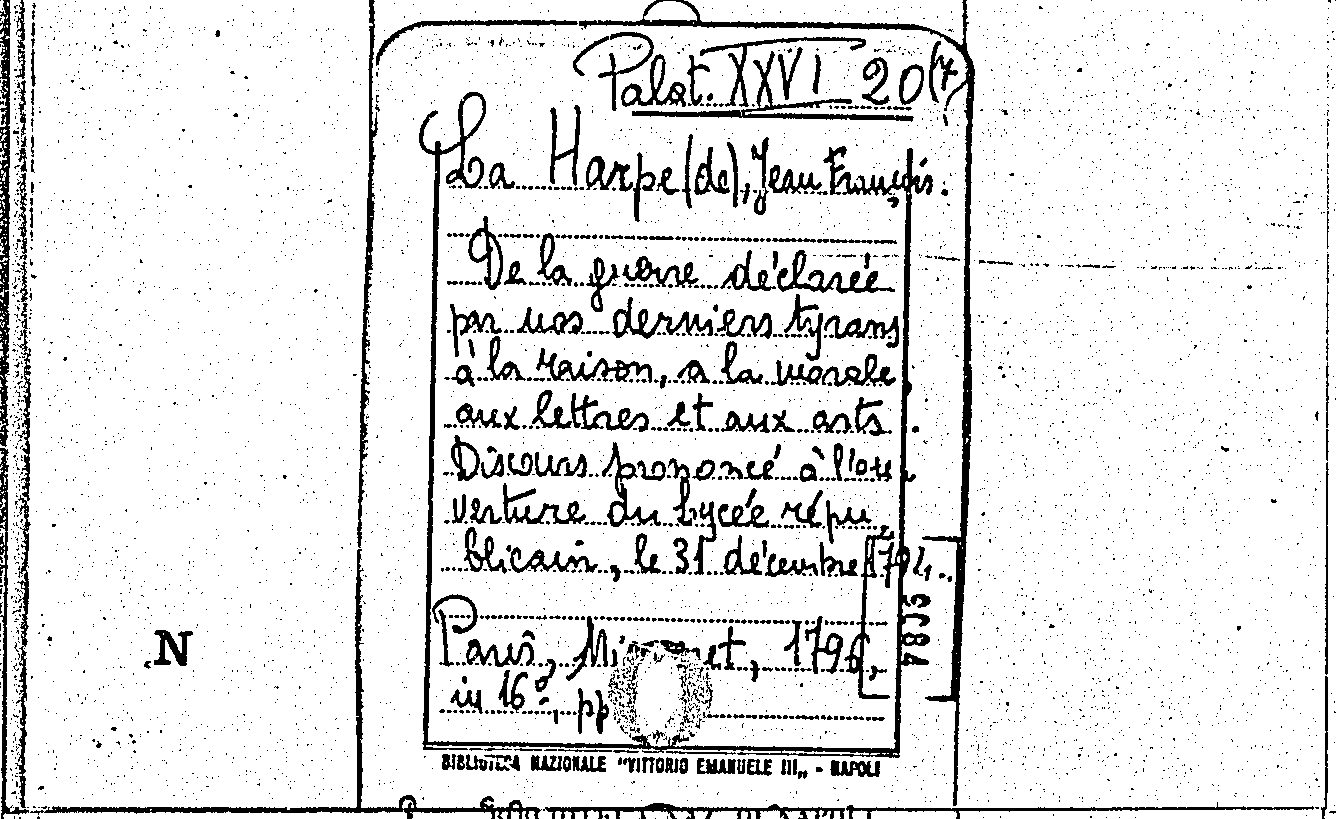 Palat. XXVI 20(7
La Harpe (de), Jean François.
De la guerre déclarée
par nos derniers tyrans
à la raison, a la morale,
aux lettres et aux arts.
Discours prononcé à l'ou
verture du Lycée répu
blicain, le 31 décembre 1794.
Paris, 1796,
in 16º, pp
BIBLIOTECA NAZIONALE "VITTORIO EMANUELE III„ - NAPOLI
N